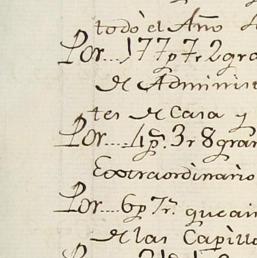 todo el Año
Por.... 177p 7r 2gra
de Adminis
tes de Casa y
Por.... 4p.s 3r 8gran
Extraordinario
Por.... 6p 7r.s que ai
de las Capill